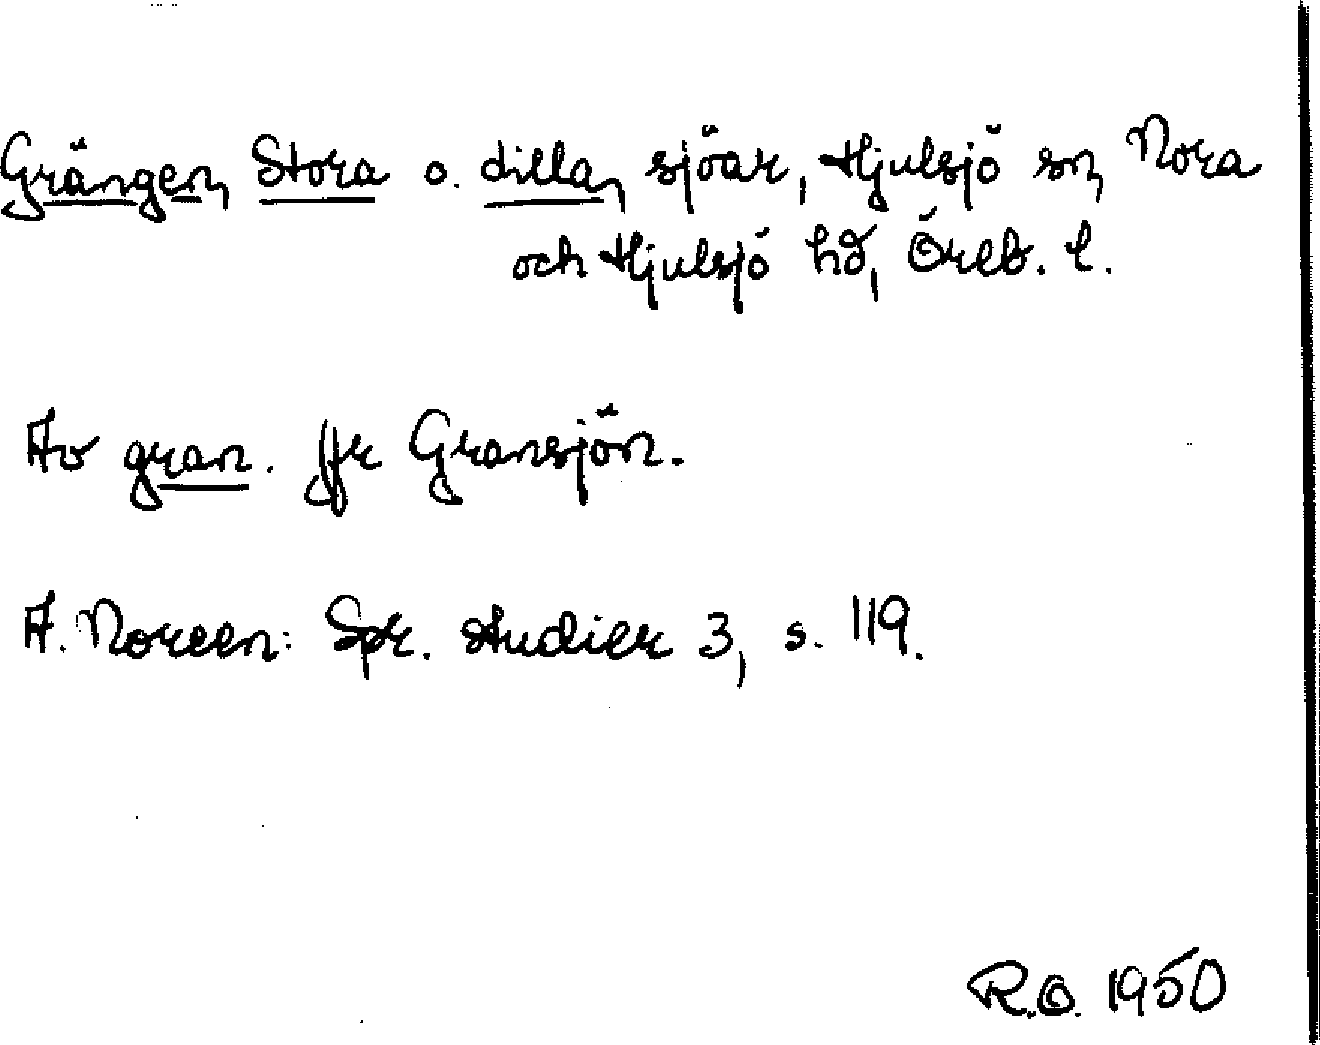 Grängen, Stora o. Lilla, sjöar, Hjulsjö sn, Nora
och Hjulsjö hd, Öreb. l.
Av gran. Jfr Gransjön.
A. Noreen: Spr. studier 3, s. 119.
R.O. 1950